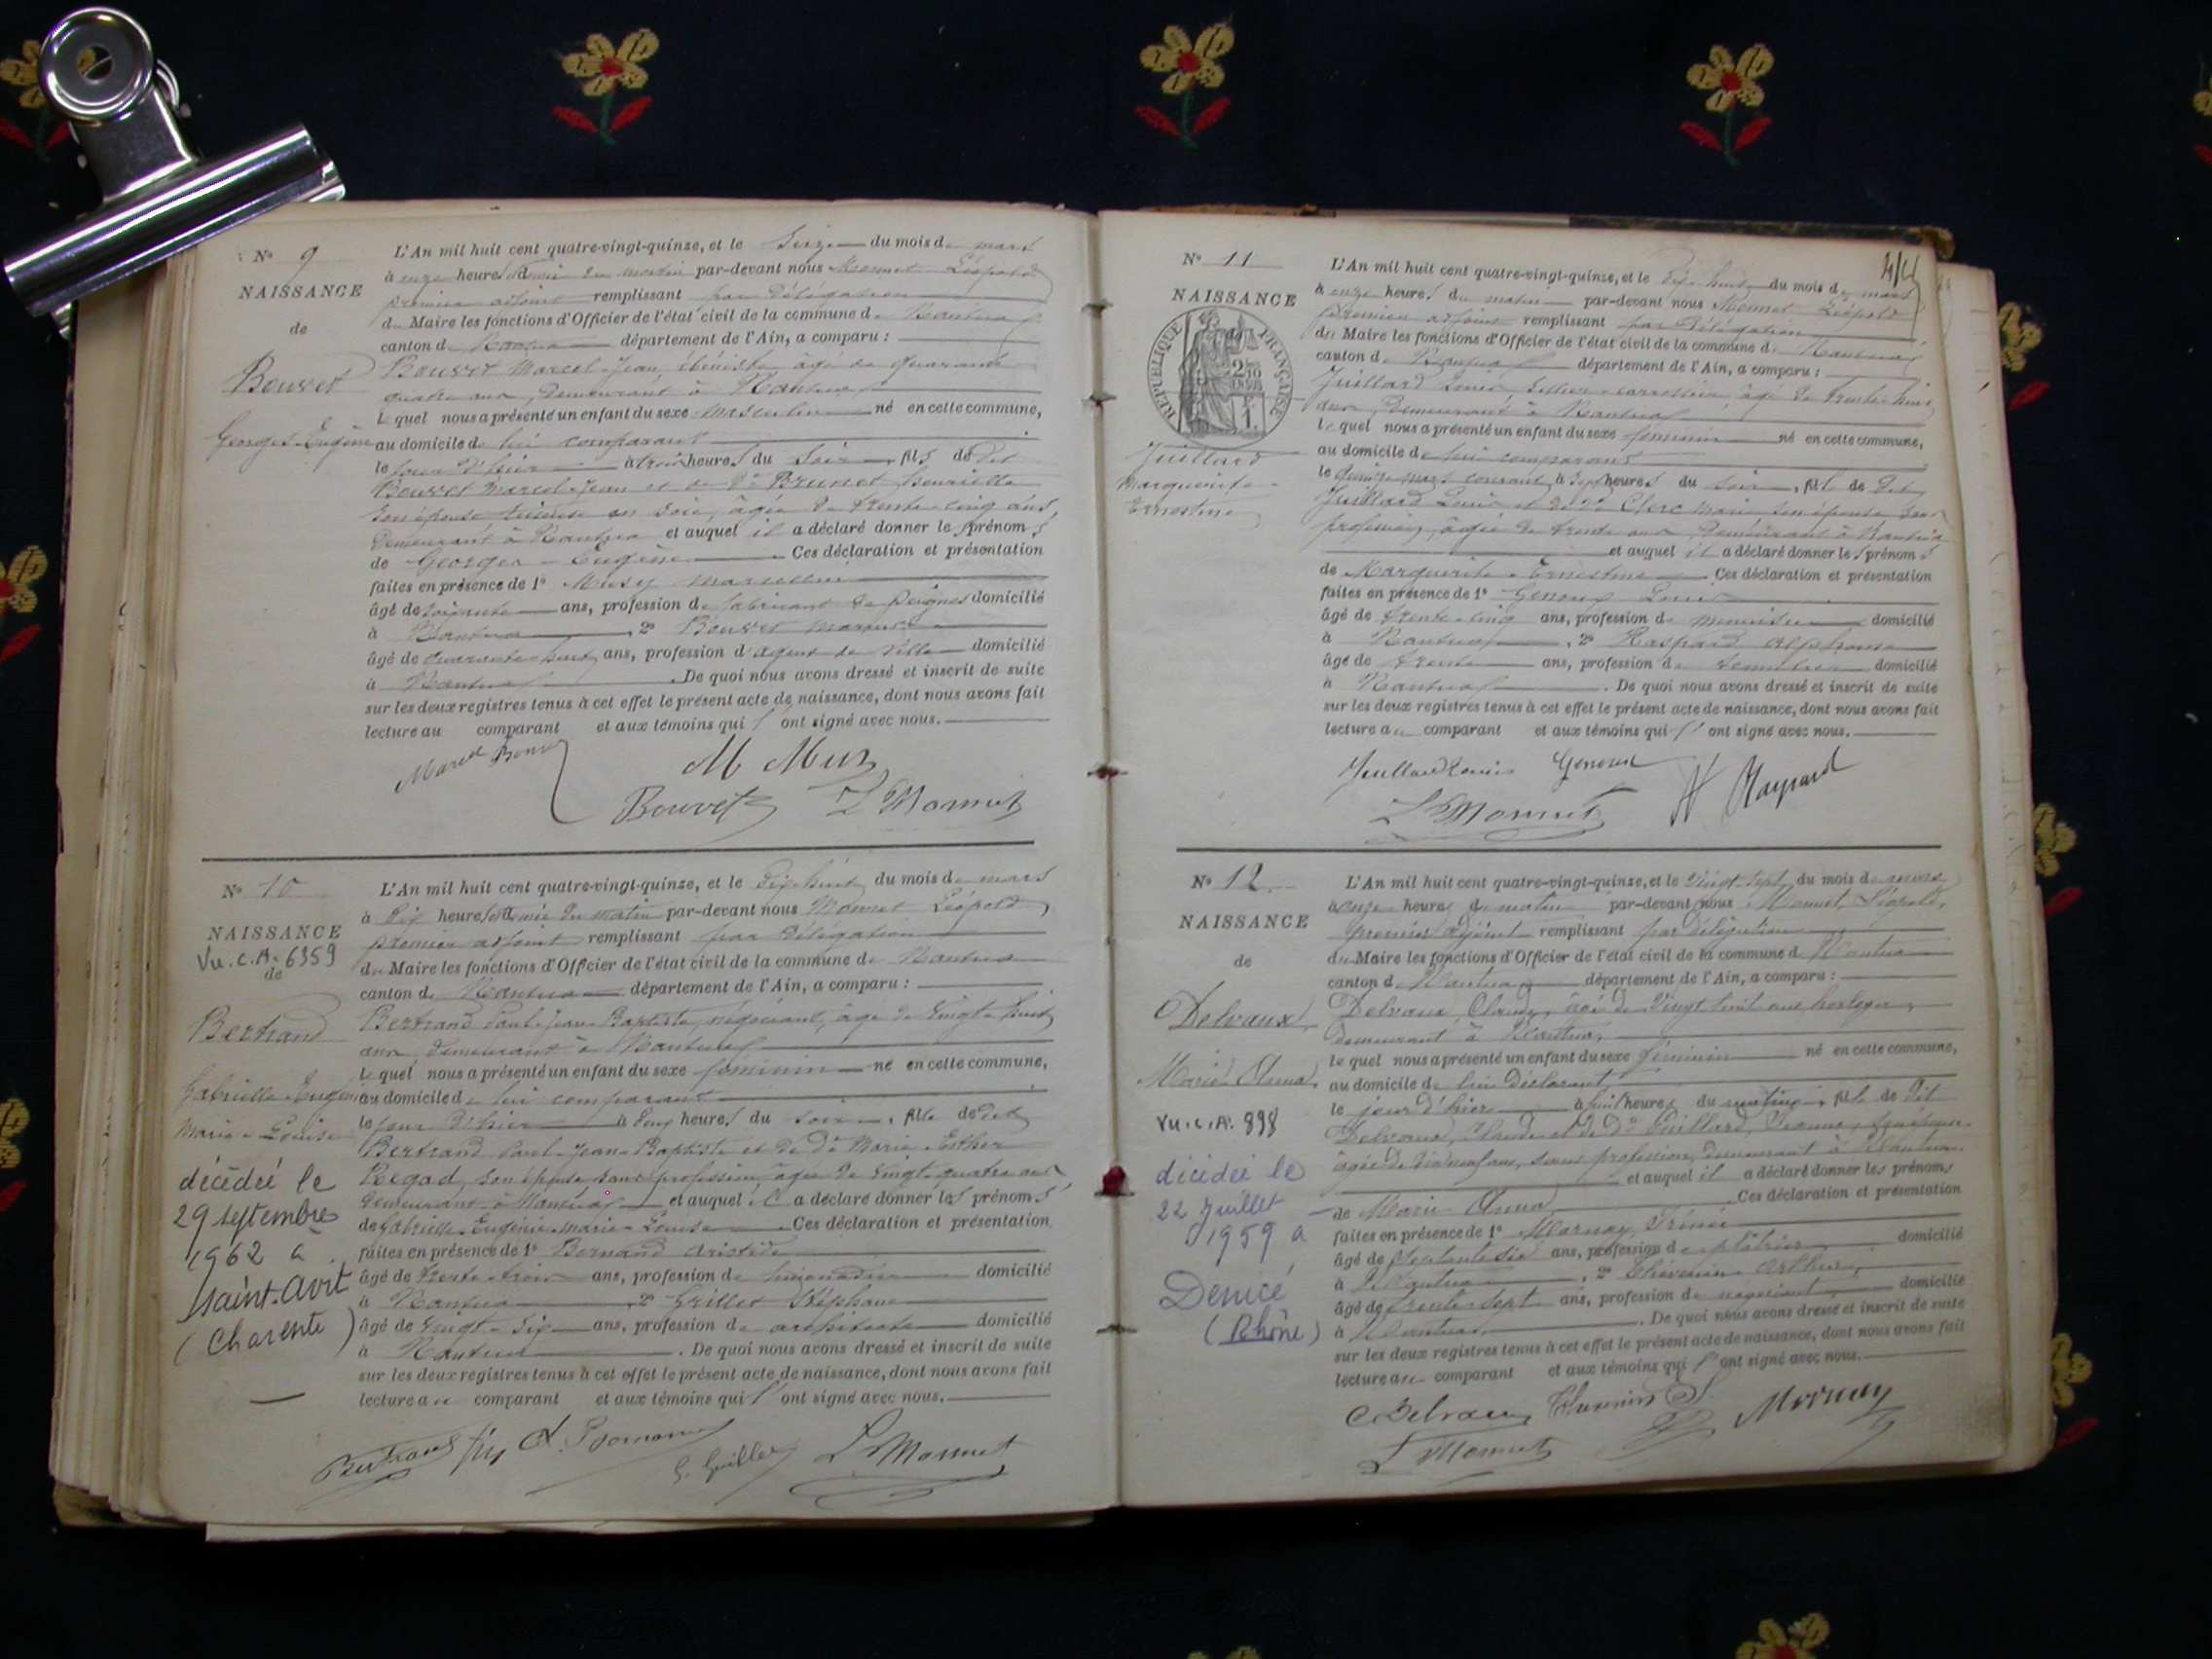 N° 9
NAISSANCE
de
Bouvet
Georges-Eugène
L'An mil huit cent quatre-vingt-quinze, et le Seize du mois de mars
à onze heures et demie du matin par-devant nous Monnet Léopold
premier adjoint remplissant par Délégation
du Maire les fonctions d'Officier de l'état civil de la commune de Nantua
canton de Nantua département de l'Ain, a comparu :
Bouvet Marcel-Jean, ébéniste âgé de quarante
quatre ans, demeurant à Nantua
lequel nous a présenté un enfant du sexe masculin né en cette commune,
au domicile de lui comparant
le jour d'hier à trois heures du soir, fils de dit
Bouvet Marcel-Jean et de De Brunet
son épouse, tisseuse en soie, âgée de trente-cinq ans,
demeurant à Nantua et auquel il a déclaré donner les prénoms
de Georges-Eugène Ces déclaration et présentation
faites en présence de 1° Musy Marcellin
âgé de soixante ans, profession de fabricant de peignes domicilié
à Nantua, 2° Bouvet
âgé de quarante-huit ans, profession d'agent de ville domicilié
à Nantua. De quoi nous avons dressé et inscrit de suite
sur les deux registres tenus à cet effet le présent acte de naissance, dont nous avons fait
lecture au comparant et aux témoins qui l'ont signé avec nous.
Marcel Bouvet
M Musy
Bouvet L Monnet
N° 10
NAISSANCE
Vu. C.A. 6959
de
Bertrand
Gabrielle-Eugénie
Marie-Louise
décédée le
29 septembre
1962 à
Saint-Avit
(Charente)
L'An mil huit cent quatre-vingt-quinze, et le dix-huit du mois de mars
à dix heures et demie du matin par-devant nous Monnet Léopold,
premier adjoint remplissant par Délégation
du Maire les fonctions d'Officier de l'état civil de la commune de Nantua
canton de Nantua département de l'Ain, a comparu :
Bertrand Paul-Jean-Baptiste, négociant, âgé de vingt-huit
ans, demeurant à Nantua
lequel nous a présenté un enfant du sexe féminin né en cette commune,
au domicile de lui comparant
le jour d'hier à deux heures du soir, fille de dit
Bertrand Paul-Jean-Baptiste et de De Marie-Esther
Regad, son épouse, sans profession, âgée de vingt-quatre ans
demeurant à Nantua et auquel il a déclaré donner les prénoms
de Gabrielle-Eugénie-Marie-Louise Ces déclaration et présentation
faites en présence de 1° Bernand Aristide
âgé de trente-trois ans, profession de limonadier domicilié
à Nantua, 2° Grillet Stéphane
âgé de vingt-six ans, profession d'architecte domicilié
à Nantua. De quoi nous avons dressé et inscrit de suite
sur les deux registres tenus à cet effet le présent acte de naissance, dont nous avons fait
lecture au comparant et aux témoins qui l'ont signé avec nous.
Bertrand fils
L. Monnet
N° 11
NAISSANCE
de
RÉPUBLIQUE FRANÇAISE
Juillard
Marguerite-
Ernestine
L'An mil huit cent quatre-vingt-quinze, et le dix-huit du mois de mars
à onze heures du matin par-devant nous Monnet Léopold
premier adjoint remplissant par Délégation
du Maire les fonctions d'Officier de l'état civil de la commune de Nantua
canton de Nantua département de l'Ain, a comparu :
Juillard Louis, sellier-carrossier, âgé de trente-huit
ans, demeurant à Nantua
lequel nous a présenté un enfant du sexe féminin né en cette commune,
au domicile de lui comparant
le quinze mars courant à sept heures du soir, fille de dit
Juillard Louis et de De Clerc Marie son épouse, sans
profession, âgée de trente ans, demeurant à Nantua
et auquel il a déclaré donner les prénoms
de Marguerite-Ernestine Ces déclaration et présentation
faites en présence de 1° Genoud Louis
âgé de trente-cinq ans, profession de menuisier domicilié
à Nantua, 2° Alphonse
âgé de trente ans, profession de domicilié
à Nantua. De quoi nous avons dressé et inscrit de suite
sur les deux registres tenus à cet effet le présent acte de naissance, dont nous avons fait
lecture au comparant et aux témoins qui l'ont signé avec nous.
Juillard Louis Genoud
L Monnet
N° 12
NAISSANCE
de
Delvaux
Marie-Anna
Vu. C.A. 898
décédée le
22 Juillet
1959 à
Denicé
(Rhône)
L'An mil huit cent quatre-vingt-quinze, et le vingt-sept du mois de mars
à onze heures du matin par-devant nous Monnet, Léopold,
premier adjoint remplissant par délégation
du Maire les fonctions d'Officier de l'état civil de la commune de Nantua
canton de Nantua département de l'Ain, a comparu :
Delvaux, Claude, âgé de vingt huit ans horloger,
demeurant à Nantua,
lequel nous a présenté un enfant du sexe féminin né en cette commune,
au domicile de lui déclarant,
le jour d'hier à huit heures du matin, fille de dit
Delvaux, Claude et de De Guillard, Jeanne, son épouse
âgée de dix-neuf ans, sans profession, demeurant à Nantua
et auquel il a déclaré donner les prénoms
de Marie-Anna Ces déclaration et présentation
faites en présence de 1° Mornay, Irénée
âgé de septante six ans, profession de plâtrier domicilié
à Nantua, 2° Thévenin Arthur,
âgé de trente-sept ans, profession de négociant domicilié
à Nantua. De quoi nous avons dressé et inscrit de suite
sur les deux registres tenus à cet effet le présent acte de naissance, dont nous avons fait
lecture au comparant et aux témoins qui l'ont signé avec nous.
C Delvaux Thévenin Mornay
L Monnet